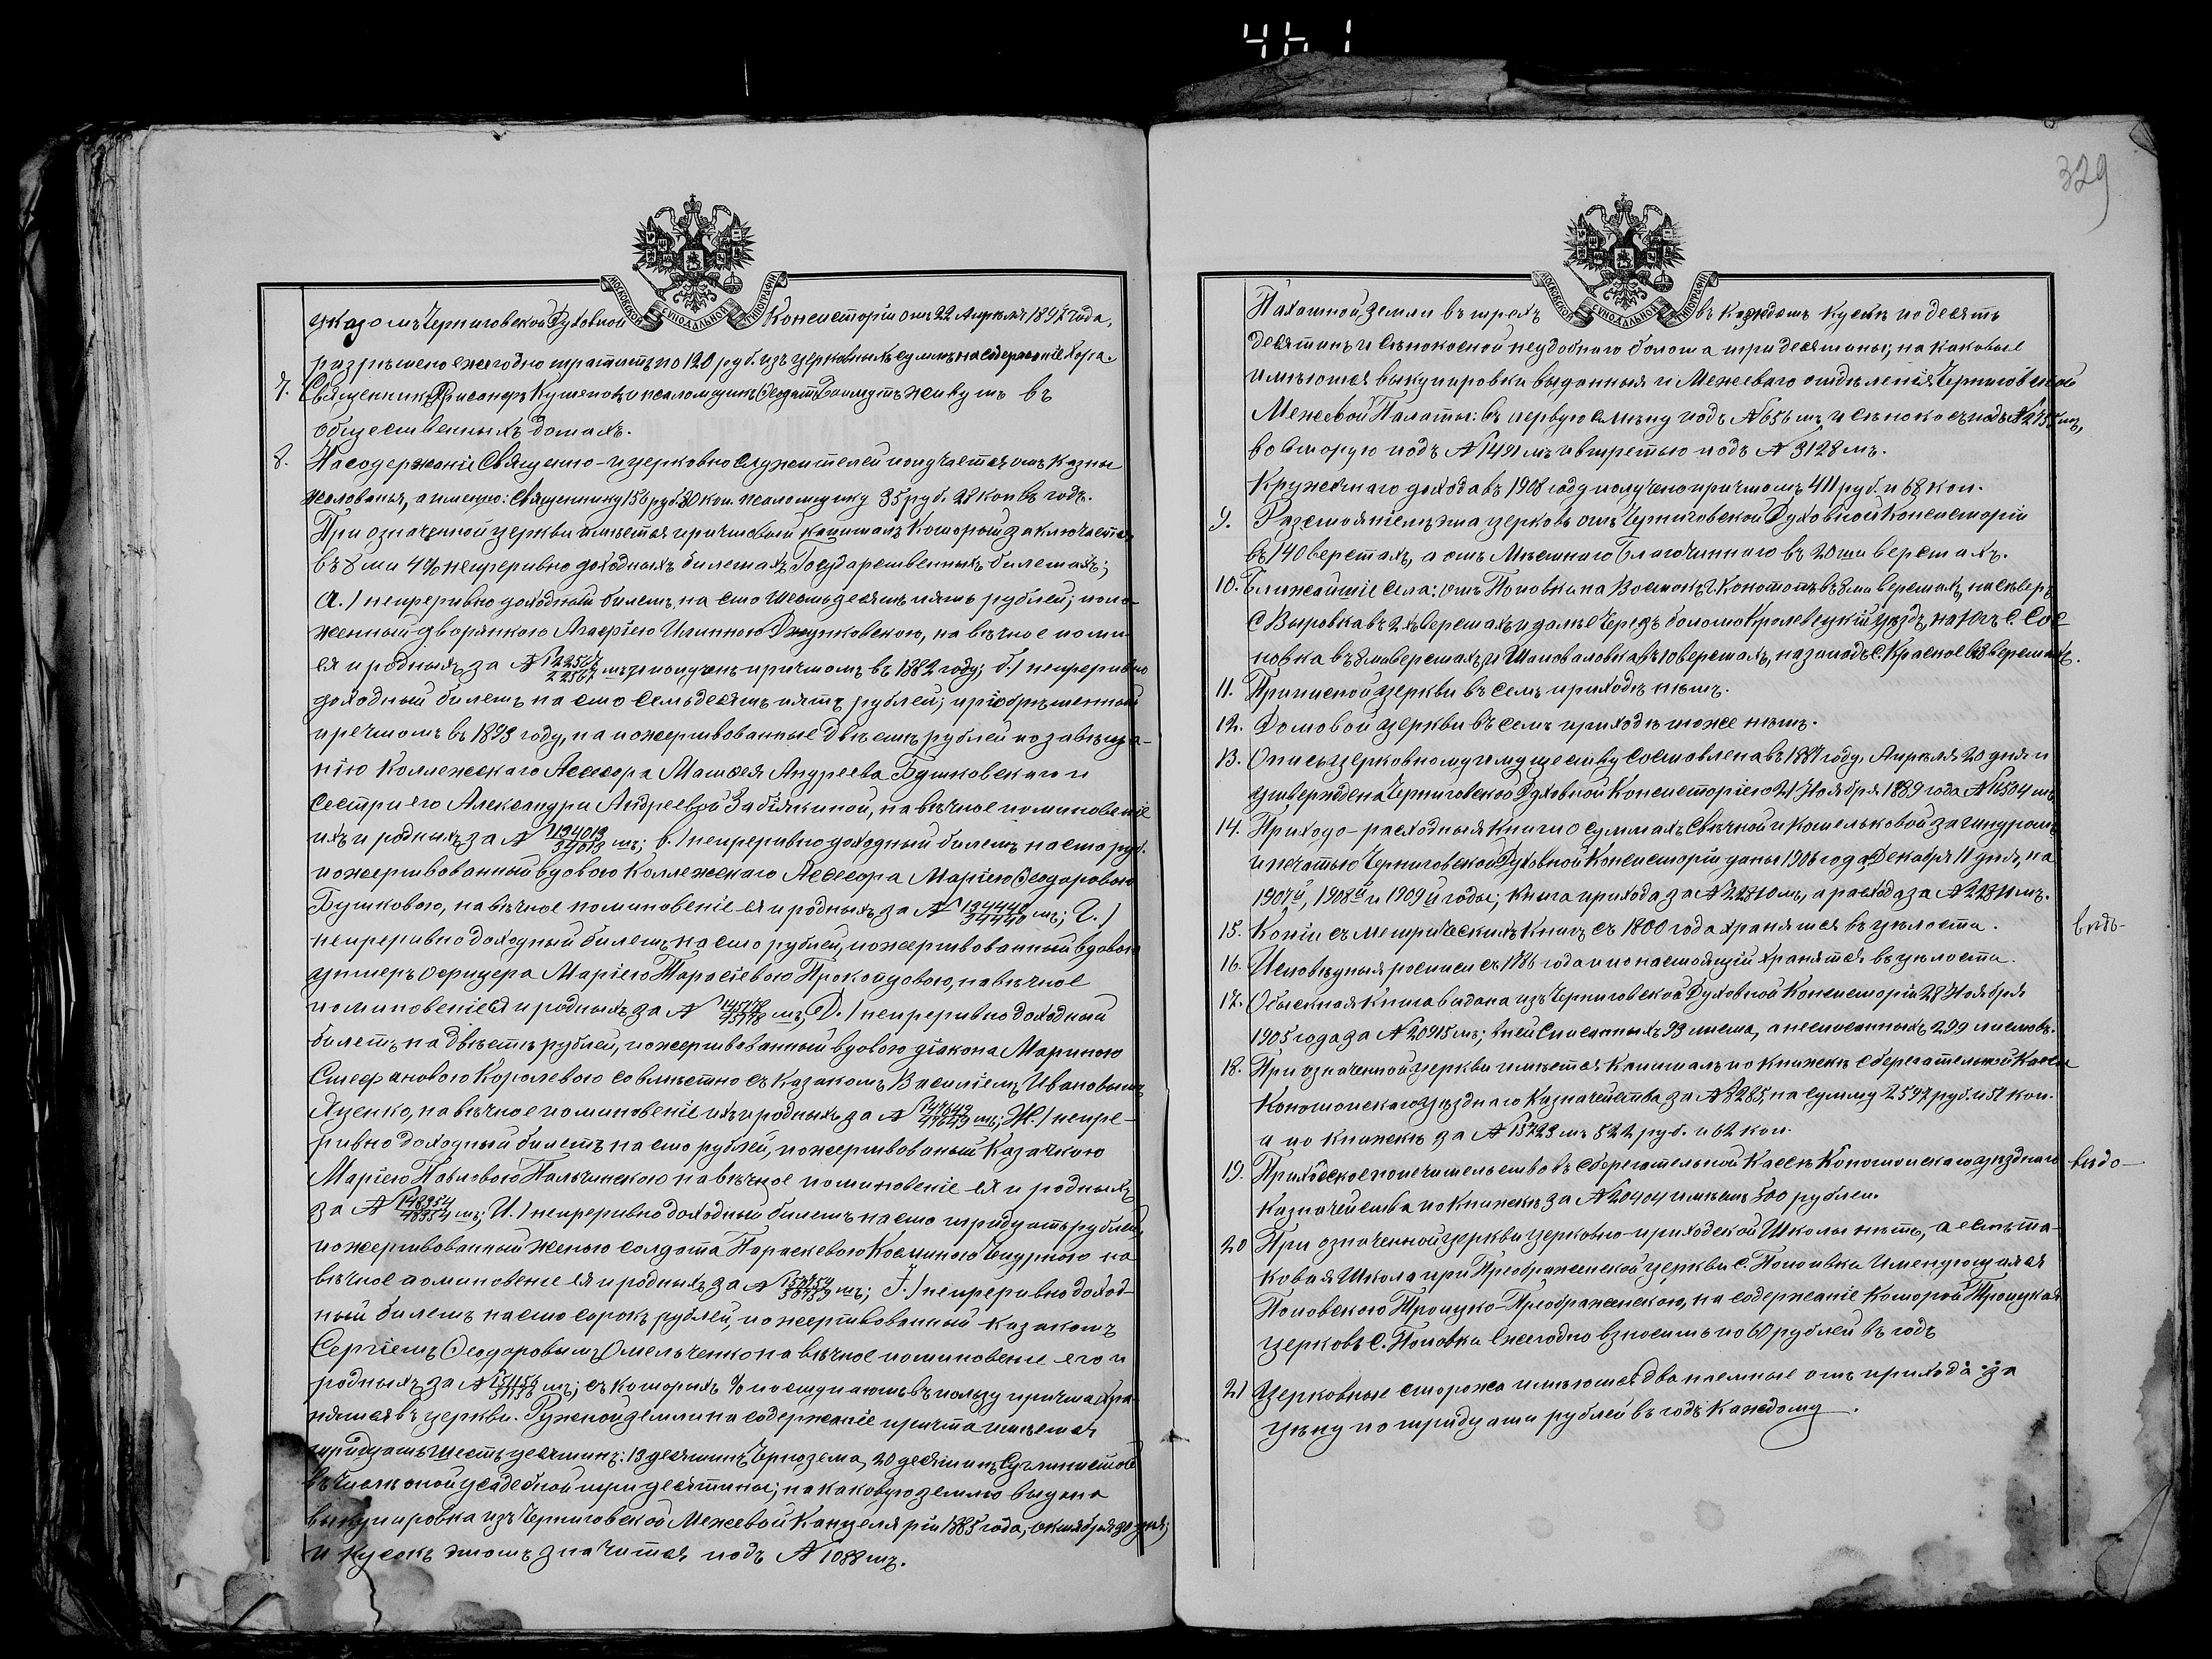 441
329
МОСКОВСКОЙ СУНОДАЛЬНОЙ ТИПОГРАФІИ
указомъ Черниговской Духовной Консисторіи отъ 22 Апрѣля 1897 года,
разрѣшено ежегодно тратить по 120 руб. изъ церковныхъ суммъ на содержаніе хора.
7. Священникъ и псаломщикъ живутъ въ
общественныхъ домахъ.
8. На содержаніе Священно-и церковно служителей получается отъ казны
жалованья, а именно: Священнику 156 руб. 80 коп. псаломщику 35 руб. 28 коп въ годъ.
При означенной церкви имѣется причтовый капиталъ который заключается
въ 8 ми 4% непреривно доходныхъ билетахъ Государственныхъ билетахъ;
а.) непреривно доходный билетъ на сто шестьдесятъ пять рублей; поло-
женный дворянкою Агафіею Илинною Джунковскою, на вѣчное поми-
ея и родныхъ за № 122567/22567 мъ и полученъ причтомъ въ 1882 году; б.) непреривно
доходный билетъ на сто семьдесятъ пять рублей; пріобрѣтенный
пречтомъ въ 1893 году, на пожертвованные двѣстѣ рублей по завѣща-
нію Коллежскаго Асессора Матвея Андреева Бутковскаго и
сестри его Александри Андреевой Забіякиной, на вѣчное поминовеніе
ихъ и родныхъ за № 134013/34013 мъ; в.) непреривно доходный билетъ на сто руб.
пожертвованный вдовою Коллежскаго Асессора Маріею Ѳеодоровою
Бутковою, на вѣчное поминовеніе ея и родныхъ за № 134440/34440 мъ; Г.)
непреривно доходный билетъ на сто рублей, пожертвованный вдовою
унтеръ офицера Маріею Тарасіевою Прокопдовою, на вѣчное
поминовеніе ея и родныхъ за № 145178/45178 мъ; Д.) непреривно доходный
билетъ на двѣстѣ рублей, пожертвованный вдовою діакона Мариною
Стефановою Королевою совмѣстно съ казакомъ Василіемъ Ивановымъ
Яценко, на вѣчное поминовеніе ихъ и родныхъ за № 147649/47649 мъ; Ж.) непре-
ривно доходный билетъ на сто рублей, пожертвованый Казачкою
Маріею Павловою Пальчинскою на вѣчное поминовеніе ея и родныхъ
за № 148954/48954 мъ; И.) непреривно доходный билетъ на сто тридцать рублей,
пожертвованный женою солдата Параскевою Косминою на
вѣчное поминовеніе ея и родныхъ за № 150759/50759 мъ; І.) непреривно доход-
ный билетъ на сто сорокъ рублей, пожертвованный казакомъ
Сергіемъ Ѳеодоровымъ Омельченко на вѣчное поминовеніе его и
родныхъ за № 151156/51156 мъ; съ которыхъ % поступаютъ въ пользу причта хра-
нятся въ церкви. Ружной земли на содержаніе причта имѣется
тридцать шесть десятинъ: 13 десятинъ Чернозема, 20 десятинъ Суглинистой
въ числѣ оной усадебной три десятины; на каковую землю выдана
выкупировка изъ Черниговской Межевой Канцеляріи 1885 года, октября 30 дня;
и кусокъ этотъ значится подъ № 1088 мъ.
Пахатной земли въ трехъ въ каждомъ кускѣ по десять
десятинъ и сѣнокосной неудобнаго болота три десятины; на каковые
имѣются выкупировки выданныя и Межеваго отдѣленія Черниговской
Межевой Палаты: въ первую смѣну подъ № 656 мъ и сѣнокосъ подъ № 2755 мъ,
во вторую подъ № 1491 мъ и въ третью подъ № 3128 мъ.
Кружечнаго дохода въ 1908 году получено причтомъ 411 руб. и 68 коп.
9. Разстояніемъ эта церковь отъ Черниговской Духовной Консисторіи
въ 140 верстахъ, а отъ Мѣстнаго Благочиннаго въ 20 ти верстахъ.
10. Ближайшіе села: отъ Поповки на Востокъ Г. Конотопъ въ 8 ми верстахъ, на сѣверъ
С Выровка въ 2 хъ верстахъ и далѣе Черезъ болото Кролевецкій уѣздъ, на югъ С. Сос
новка въ 8 ми верстахъ, и Шаповаловка въ 10 верстахъ, на западъ С. Красное въ 8 верстахъ.
11. Приписной церкви въ семъ приходѣ нѣтъ.
12. Домовой церкви въ семъ приходѣ тоже нѣтъ.
13. Опись церковному имуществу составлена въ 1887 году, Апрѣля 20 дня и
утверждена Черниговской Духовной Консисторіею 21 Ноября 1889 года № 16504 мъ
14. Приходо-расходныя книги о суммахъ Свѣчной и кошельковой за шнуромъ
и печатью Черниговской Духовной Консисторіи даны 1906 года, Декабря 11 дня, на
1907й, 1908й и 1909й годы; книга прихода за № 22810 мъ, а расхода за № 22811 мъ.
15. Копіи съ метрическихъ Книгъ съ 1800 года хранятся въ цѣлости.
16. Исповѣдныя росписи съ 1786 года и по настоящій хранятся въ цѣлости.
17. Обыскная книга видана изъ Черниговской Духовной Консисторіи 29 Ноября
1905 года за № 20915 мъ; въ ней списанныхъ 93 листа, а неисписанныхъ 299 листовъ.
18. При означенной церкви имѣется Капиталъ по книжкѣ сберегательной Кассы
Конотопскаго уѣзднаго Казначейства, за № 3285, на сумму 2597 руб. и 51 коп.
а по книжкѣ за № 15723 мъ 522 руб. и 62 коп.
19. Приходское попечительство въ сберегательной Кассѣ Конотопскаго уѣзднаго
казначейства по книжкѣ за № 20404 имѣетъ 300 рублей.
20 При означенной церкви церковно-приходской Школы нѣтъ, а есть та-
ковая Школа при Преображенской церкви С. Поповки Именующаяся
Поповскою Троицко-Преображенскою, на содержаніе которой Троицкая
церковь С. Поповки ежегодно взноситъ по 60 рублей въ годъ
21 Церковные сторожа имѣются два наемные отъ прихода за
цѣну по тридцати рублей въ годъ каждому.